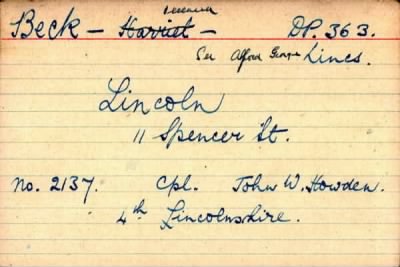 deceased
Beck - Harriet - DP. 363.
See Alfred George Lincs.
Lincoln
11 Spencer St.
No. 2137. Cpl. John W. Howden.
4th Lincolnshire.